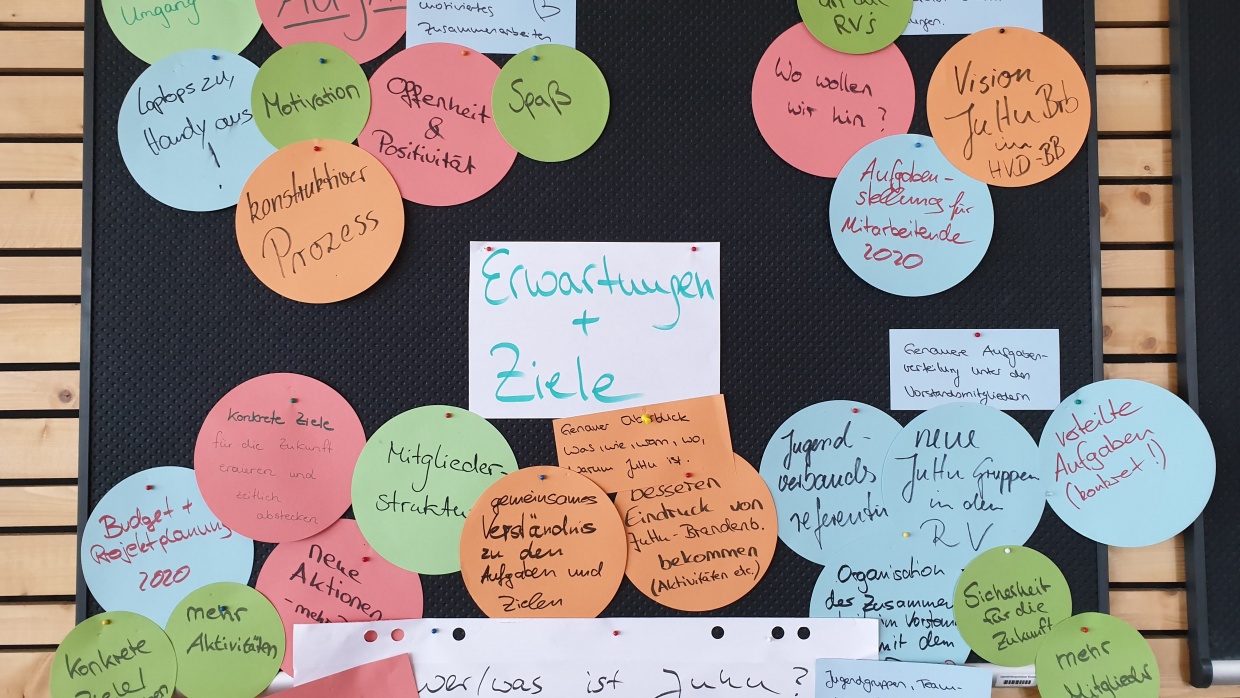 Umgang
motiviertes
Zusammenarbeiten
RVs
Laptops zu,
Handy aus
!
Motivation
Offenheit
&
Positivität
Spaß
konstruktiver
Prozess
Wo wollen
wir hin?
Vision
JuHu Brb
im
HVD-BB
Aufgaben-
stellung für
Mitarbeitende
2020
Erwartungen
+
Ziele
Genauere Aufgaben-
verteilung unter den
Vorstandsmitgliedern
Konkrete Ziele
für die Zukunft
und
zeitlich
abstecken
Mitglieder-
struktur
Genauer
Was, wie, wann, wo,
warum JuHu ist.
gemeinsames
Verständnis
zu den
Aufgaben und
Zielen
besseren
Eindruck von
JuHu-Brandenb.
bekommen
(Aktivitäten etc.)
Jugend-
verbands
referentin
neue
JuHu Gruppen
in den
RV
verteilte
Aufgaben
(konkret!)
Budget +
Projektplanung
2020
neue
Aktionen
-mehr
Organisation
des Zusammen
im Vorstan
mit dem
Sicherheit
für die
Zukunft
mehr
Aktivitäten
Konkrete
Ziele!
mehr
Mitglieder
wer/was ist JuHu?
Jugendgruppen, Team-